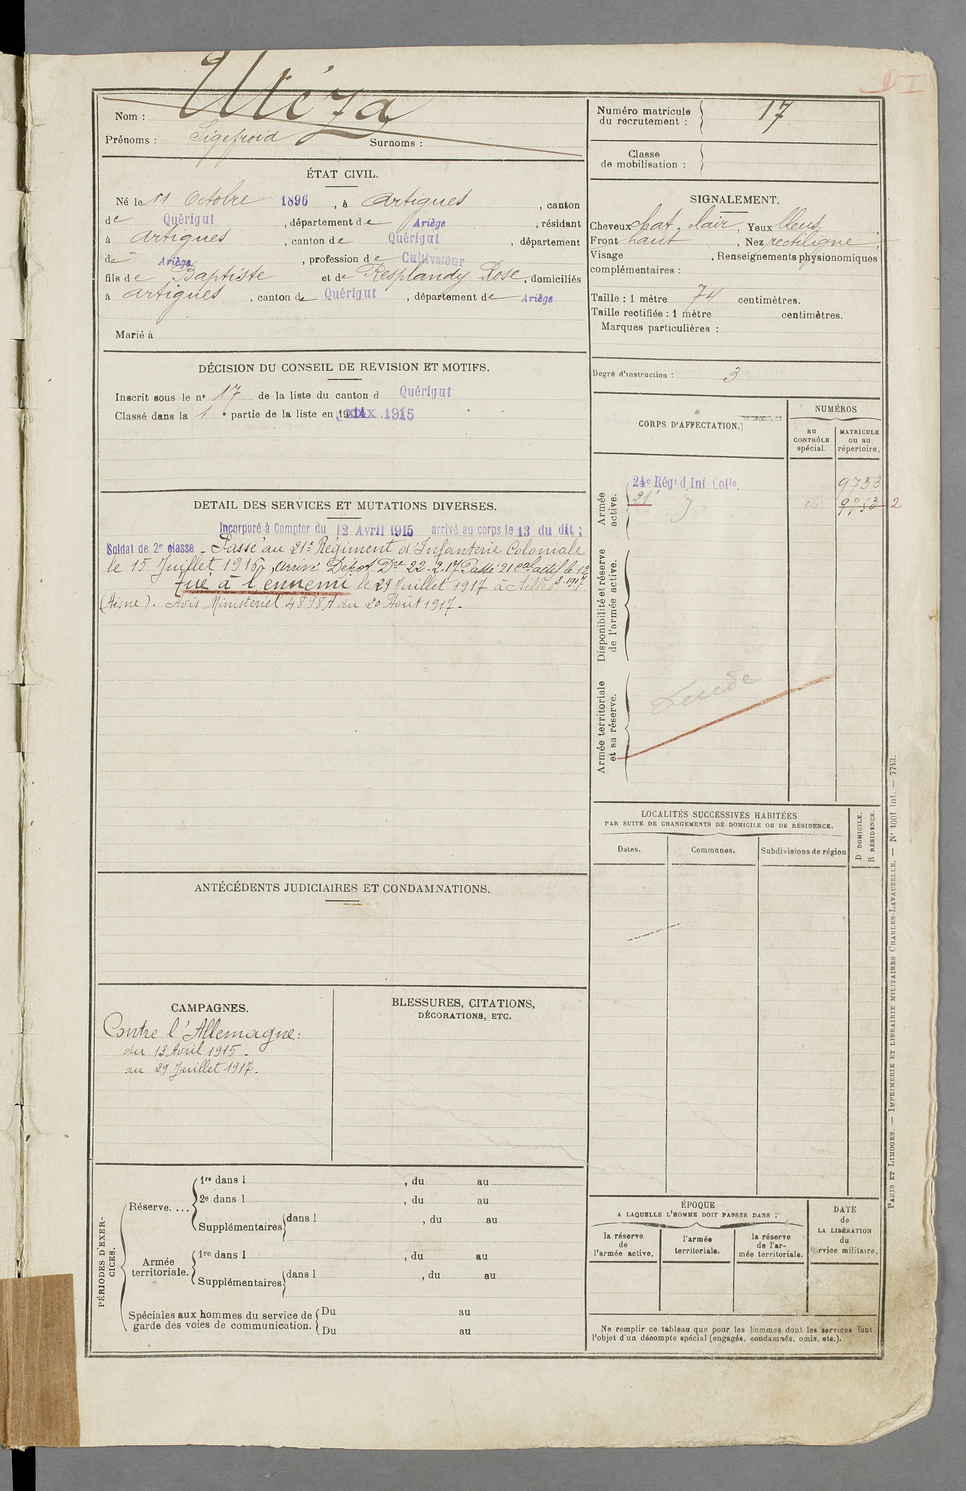 Nom : Utéza
Prénoms : Sigefroid Surnoms :
ÉTAT CIVIL.
Né le 11 Octobre 1896, à Artigues, canton
de Quérigut, département de Ariège, résidant
à Artigues, canton de Quérigut, département
de Ariège, profession de Cultivateur
fils de Baptiste et de Resplandy Rose, domiciliés
à Artigues, canton de Quérigut, département de Ariège
Marié à
DÉCISION DU CONSEIL DE REVISION ET MOTIFS.
Inscrit sous le nº 17 de la liste du canton d Quérigut
Classé dans la 1e partie de la liste en 1915
DETAIL DES SERVICES ET MUTATIONS DIVERSES.
Incorporé à Compter du 12 Avril 1915 arrivé au corps le 13 du dit ;
Soldat de 2e classe - Passé au 21e Régiment d'Infanterie Coloniale
le 15 Juillet 1916, arrivé Dépot Dre 22-2-17 Passé 21e cal actif le 12
3-1917
tué à l'ennemi le 29 Juillet 1917 à
(Aisne). Avis Ministériel 4898A du 20 Août 1917.
ANTÉCÉDENTS JUDICIAIRES ET CONDAMNATIONS.
CAMPAGNES.
Contre l'Allemagne:
du 13 Avril 1915
au 29 Juillet 1917.
BLESSURES, CITATIONS,
DÉCORATIONS, ETC.
PÉRIODES D'EXERCICES.
Réserve....
1re dans l , du au
2e dans l , du au
Supplémentaires dans l , du au
Armée territoriale.
1re dans l , du au
Supplémentaires dans l , du au
Spéciales aux hommes du service de garde des voies de communication.
Du au
Du au
Numéro matricule du recrutement : 17
Classe de mobilisation :
SIGNALEMENT.
Cheveux chat. clair, Yeux bleus
Front haut, Nez rectiligne,
Visage , Renseignements physionomiques
complémentaires :
Taille : 1 mètre 74 centimètres.
Taille rectifiée : 1 mètre centimètres.
Marques particulières :
Degré d'instruction : 3
CORPS D'AFFECTATION.
NUMÉROS
au CONTRÔLE spécial.
MATRICULE ou au répertoire.
Armée active.
24e Régt d'Inf. Colle. 9753
21e 9753 2
Disponibilité et réserve de l'armée active.
Armée territoriale et sa réserve.
LOCALITÉS SUCCESSIVES HABITÉES
PAR SUITE DE CHANGEMENTS DE DOMICILE OU DE RÉSIDENCE.
Dates.
Communes.
Subdivisions de région
D DOMICILE.
R RÉSIDENCE.
ÉPOQUE
A LAQUELLE L'HOMME DOIT PASSER DANS :
la réserve de l'armée active.
l'armée territoriale.
la réserve de l'armée territoriale.
DATE de LA LIBÉRATION du service militaire.
Ne remplir ce tableau que pour les hommes dont les services font
l'objet d'un décompte spécial (engagés, condamnés, omis, etc.).
PARIS ET LIMOGES. — IMPRIMERIE ET LIBRAIRIE MILITAIRES CHARLES-LAVAUZELLE. — Nº 1001 int. — 7743.